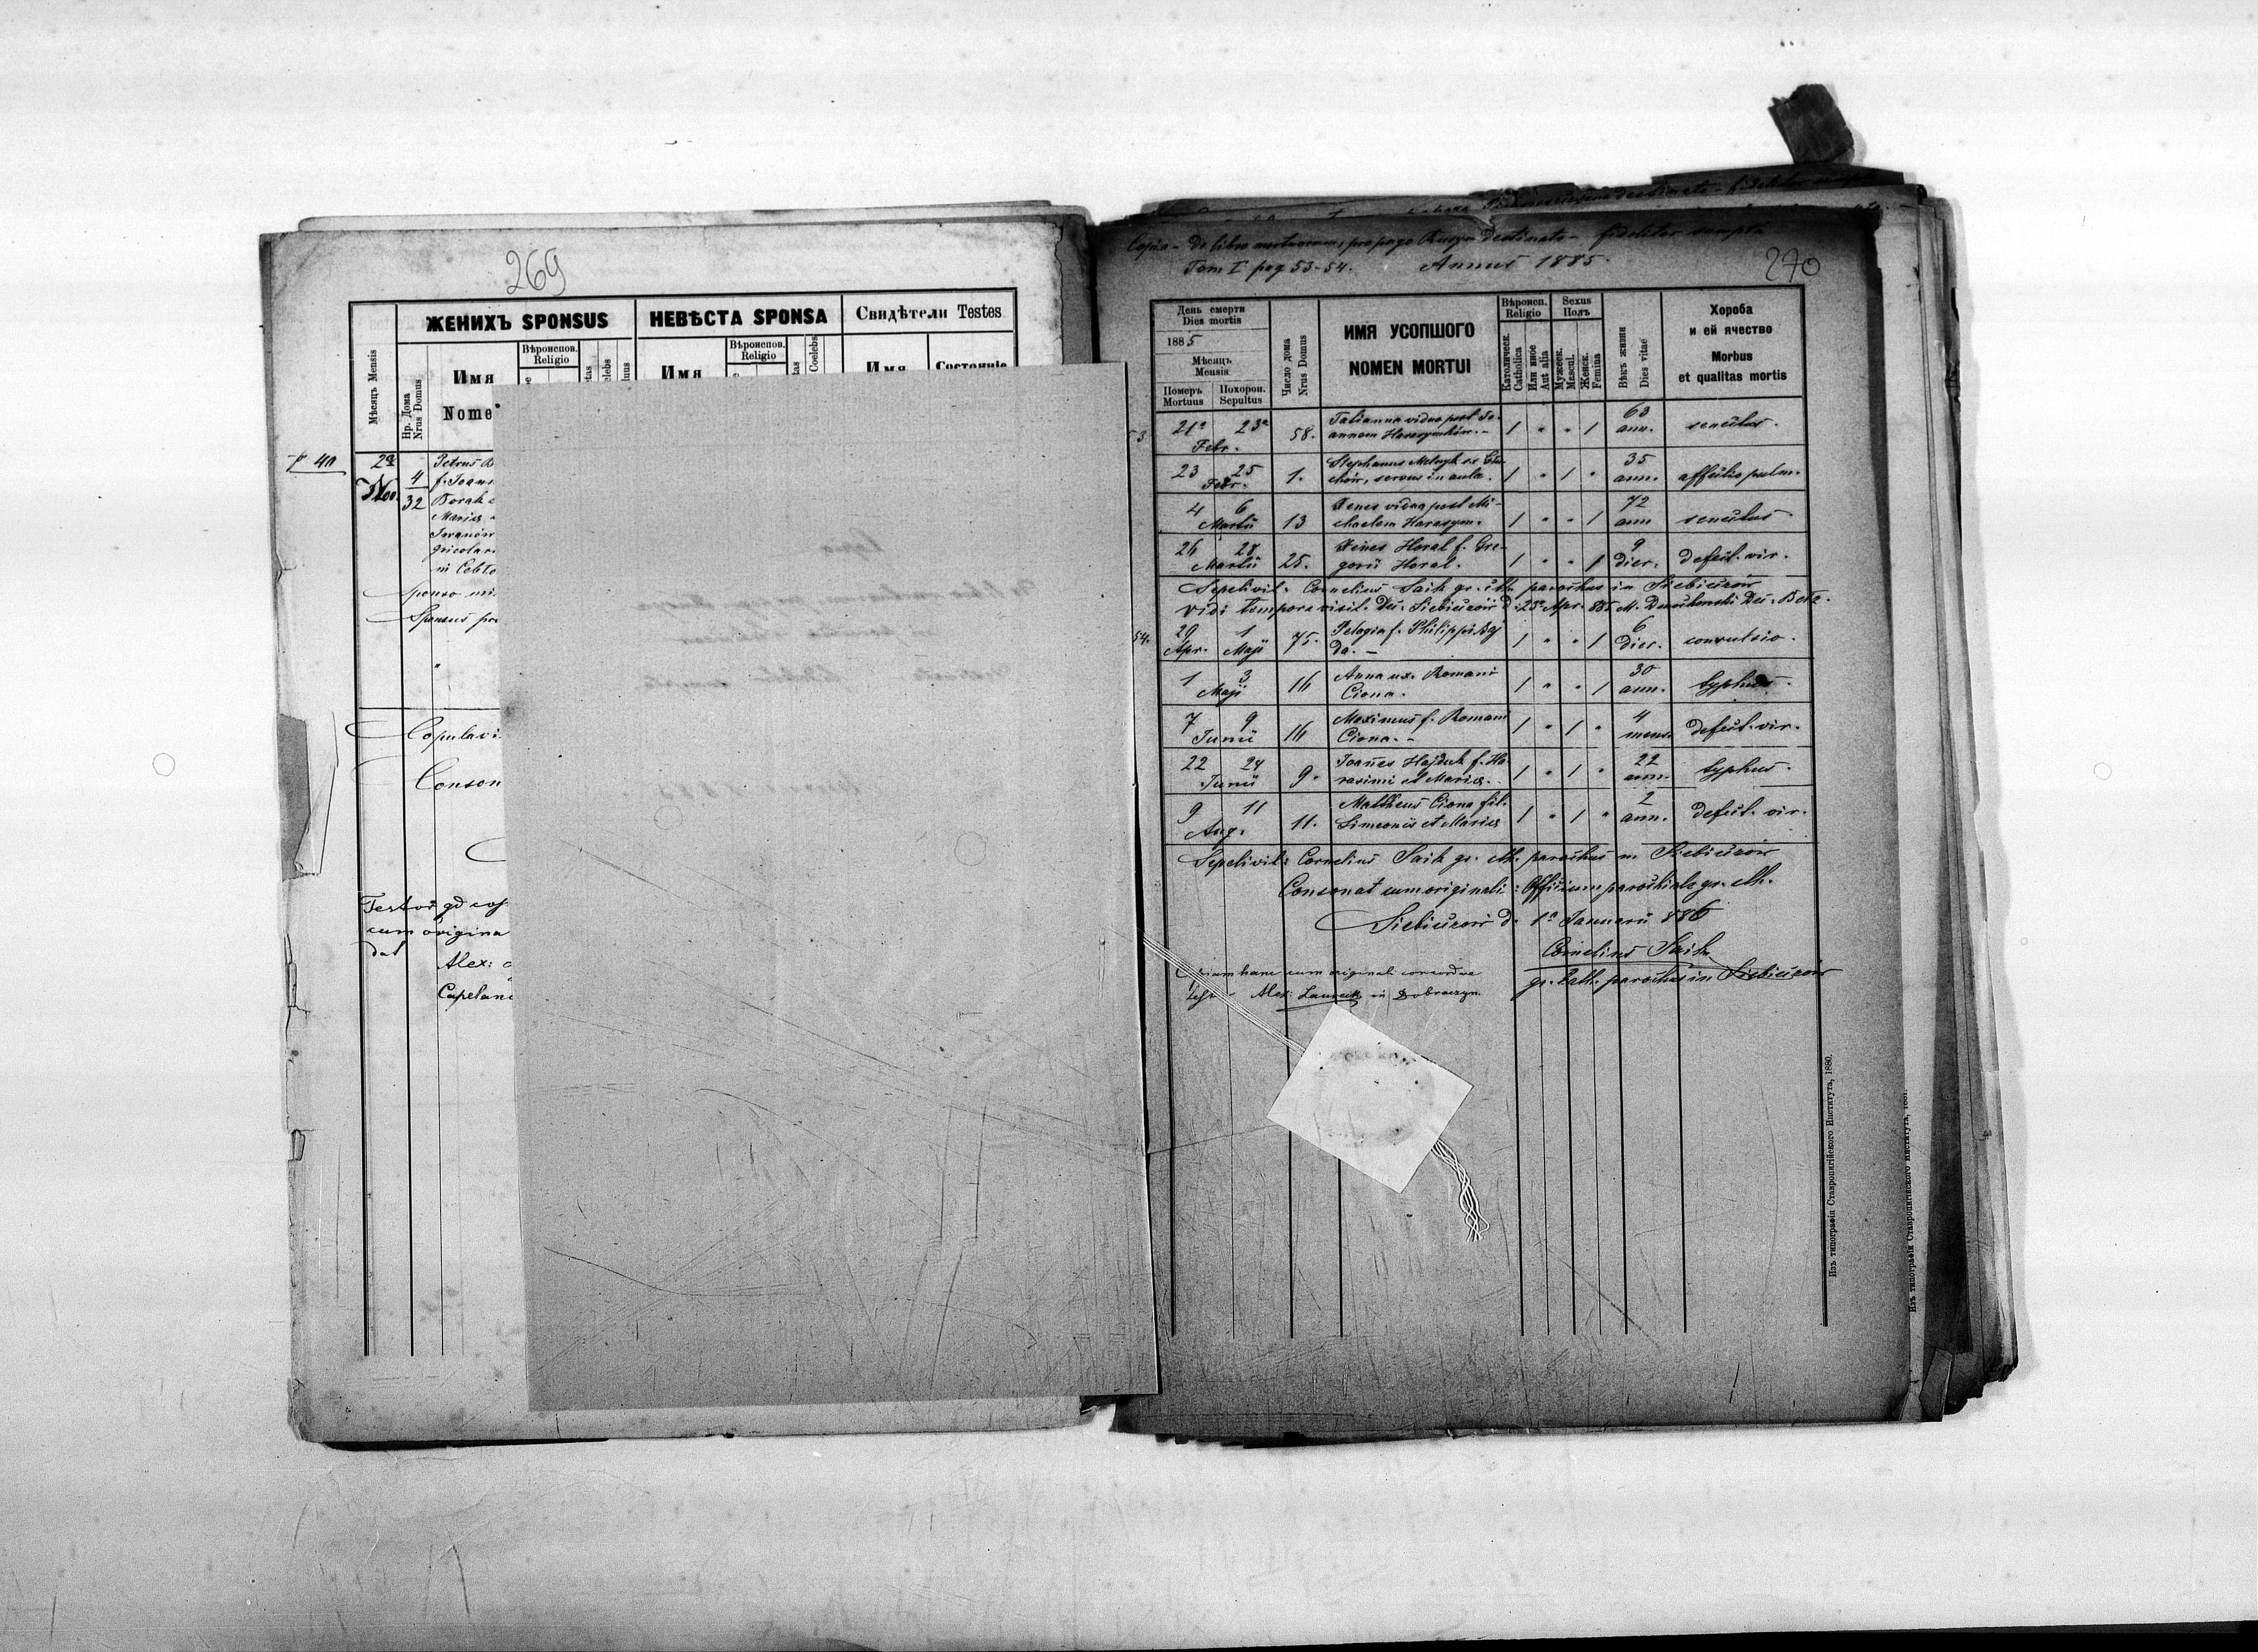 269
ЖЕНИХЪ SPONSUS
НЕВѢСТА SPONSA
Свидѣтели Testes
Мѣсяцъ Mensis
Нр. Дома
Nrus Domus
Имя
Nome
Вѣроиспов.
Religio
Имя
Вѣроиспов.
Religio
Coelebs
Имя
Состояніе
p 40
2a
Nov.
4
32
Petrus
f. Joan
Borak
Maria
Iwanów
gricola
in Cebl
Sponso
Sponsus
Copulavi
Conson
Testor qd cop
cum origina
dat
Alex:
Capelan
Copia - De libro mortuorum, pro pago destinato - fideliter sumpta
Tom I pag 53-54. Annus 1885.
270
День смерти
Dies mortis
1885
Мѣсяцъ
Mensis
Померъ
Mortuus
Похорон.
Sepultus
Число дома
Nrus Domus
ИМЯ УСОПШОГО
NOMEN MORTUI
Вѣроисп.
Religio
Католическ.
Catholica
Или иное
Aut alia
Sexus
Полъ
Мужеск.
Mascul.
Женск.
Femina
Вѣкъ жизни
Dies vitae
Хороба
и ей ячество
Morbus
et qualitas mortis
53
21a 23a Febr. 58. Tatianna vidua post Jo-
annem Harasymków. - 1 " " 1 63 ann. senectus.
23 25 Febr. 1. Stephanus Melnyk ex
servus in aula. 1 " 1 " 35 ann. affectio pulm.
4 6 Martii 13 Xenes vidua post Mi-
chaelem Harasym. 1 " " 1 72 ann senectus
26 28 Martii 25. Xenes Horal f. Gre-
gorii Horal. 1 " " 1 9 dier. defect. vir.
Sepelivit: Cornelius Saik gr. cth. parochus in Siebieczów
Vidi tempore visit. Dec. Siebieczów d. 23a Apr. 885 M. Dec. Belz.
54.
29 Apr. 1 Maji 75. Pelagia f. Philippi
da. - 1 " " 1 6 dier. convulsio.
1 3 Maji 16 Anna ux. Romani
Ciona. 1 " " 1 30 ann. typhus.
7 9 Junii 16 Maximus f. Romani
Ciona. - 1 " 1 " 4 mens. defect. vir.
22 24 Junii 9. Joannes Hajduk f. Ha-
rasimi et Mariae. 1 " 1 " 22 ann. typhus.
9 11 Aug. 11. Mattheus Ciona fil.
Simeonis et Mariae 1 " 1 " 2 ann. defect. vir.
Sepelivit: Cornelius Saik gr. cth. parochus in Siebieczów
Consonat cum originali: Officium parochiale gr. cth.
Siebieczów d. 1a Januarii 886
Cornelius Saik
gr. cath. parochus in Siebieczów
hanc cum originali concordare
Alex. in Dobraczyn.
Изъ типографіи Ставропигійского Института, 1880.
Изъ типографіи Ставропигійского Института,